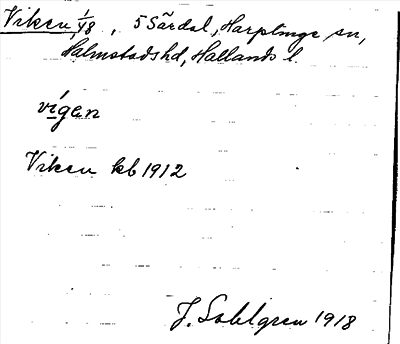 Viken, 1/48, 5 Särdal, Harplinge sn,
Halmstads hd, Hallands l.
vígen
Viken kb 1912
J. Sahlgren 1918